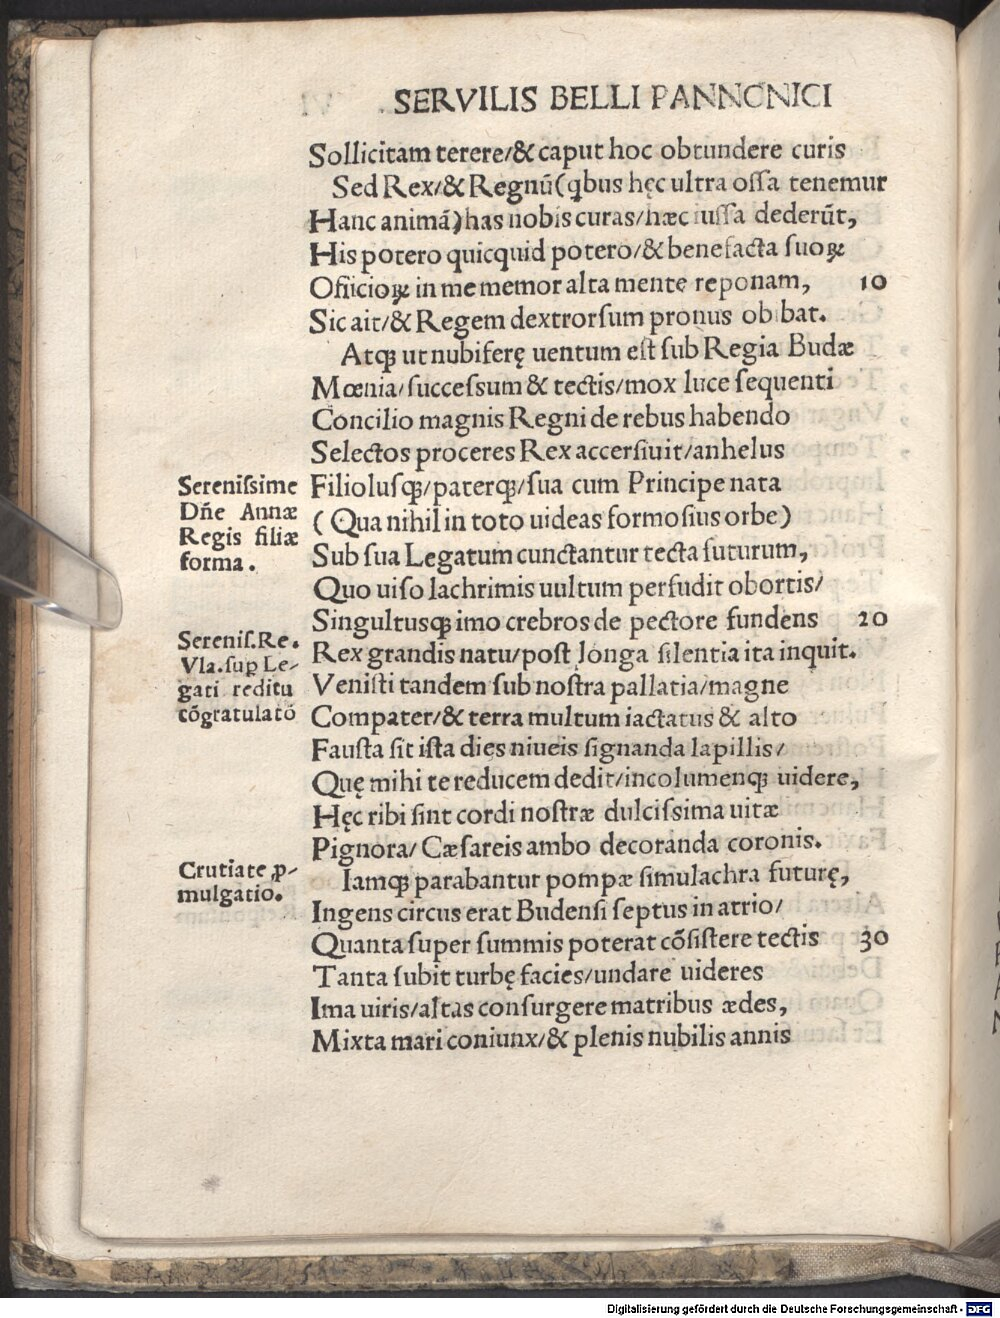 SERVILIS BELLI PANNONICI
Sollicitam terere/& caput hoc obtundere curis
Sed Rex/& Regnũ(qbus hęc ultra ossa tenemur
Hanc animã)has nobis curas/hæc iussa dederũt,
His potero quicquid potero/& benefacta suoꝝ
Officioꝝ in me memor alta mente reponam, 10
Sic ait/& Regem dextrorsum pronus obibat.
Atqꝫ ut nubiferę uentum est sub Regia Budæ
Mœnia/successum & tectis/mox luce sequenti
Concilio magnis Regni de rebus habendo
Selectos proceres Rex accersiuit/anhelus
Serenissime
Dñe Annæ
Regis filiæ
forma.
Filiolusqꝫ/paterqꝫ/sua cum Principe nata
(Qua nihil in toto uideas formosius orbe)
Sub sua Legatum cunctantur tecta futurum,
Quo uiso lachrimis uultum perfudit obortis/
Singultusqꝫ imo crebros de pectore fundens 20
Serenis.Re.
Vla.suꝑ Le-
gati reditu
cõgratulatõ
Rex grandis natu/post longa silentia ita inquit.
Venisti tandem sub nostra pallatia/magne
Compater/& terra multum iactatus & alto
Fausta sit ista dies niueis signanda lapillis/
Quę mihi te reducem dedit/incolumenqꝫ uidere,
Hęc ribi sint cordi nostræ dulcissima uitæ
Pignora/Cæsareis ambo decoranda coronis.
Crutiate ꝓ-
mulgatio.
Iamqꝫ parabantur pompæ simulachra futurę,
Ingens circus erat Budensi septus in atrio/
Quanta super summis poterat cõsistere tectis 30
Tanta subit turbę facies/undare uideres
Ima uiris/altas consurgere matribus ædes,
Mixta mari coniunx/& plenis nubilis annis
Digitalisierung gefördert durch die Deutsche Forschungsgemeinschaft - DFG